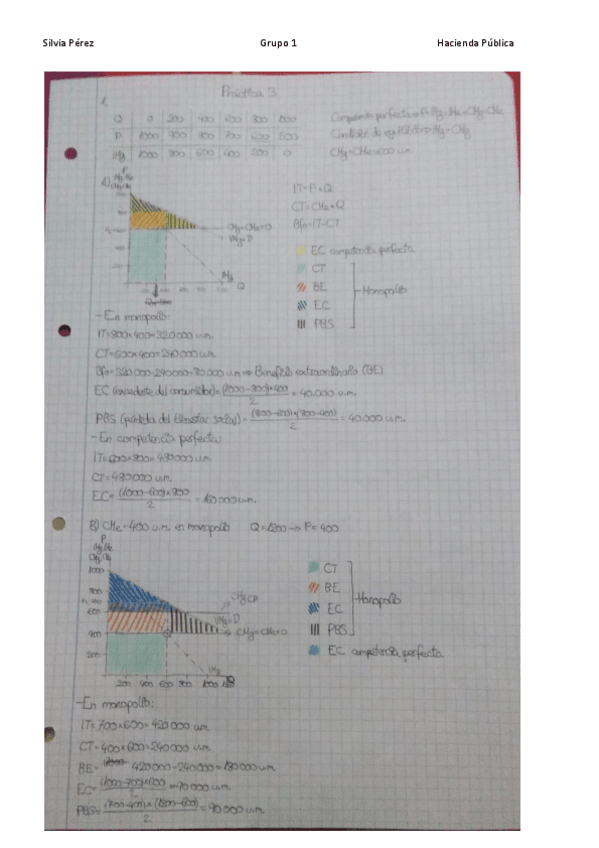 Silvia Pérez Grupo 1 Hacienda Pública
Práctica 3
1.
Q 0 200 400 600 800 1000
P 1000 900 800 700 600 500
IMg 1000 800 600 400 200 0
Competencia perfecta →
Condición de equilibrio → IMg = CMg
CMg = CMe = 600 u.m.
A)
IT = P × Q
CT = CMe × Q
Bfo = IT - CT
CMg = CMe = O
IMe = D
IMg
Q
EC competencia perfecta
CT
BE
EC
PBS
Monopolio
- En monopolio:
IT = 800 × 400 = 320000 u.m.
CT = 600 × 400 = 240000 u.m.
Bfo = 320000 - 240000 = 80000 u.m. → Beneficio extraordinario (BE)
EC (excedente del consumidor) = (1000 - 800) × 400 / 2 = 40.000 u.m.
PBS (pérdida del bienestar social) = (800 - 600) × (800 - 400) / 2 = 40.000 u.m.
- En competencia perfecta:
IT = 600 × 800 = 480000 u.m.
CT = 480000 u.m.
EC = (1000 - 600) × 800 / 2 = 160000 u.m.
B) CMe = 400 u.m. en monopolio Q = 1200 → P = 400
P
1000
CMg CP
IMe = D
CMg = CMe = O
IMg
200 400 600 800 1000
CT
BE
EC
PBS
Monopolio
EC competencia perfecta
- En monopolio:
IT = 700 × 600 = 420000 u.m.
CT = 400 × 600 = 240000 u.m.
BE = 420000 - 240000 = 180000 u.m.
EC = (1000 - 700) × 600 / 2 = 90000 u.m.
PBS = (700 - 400) × (1200 - 600) / 2 = 90000 u.m.